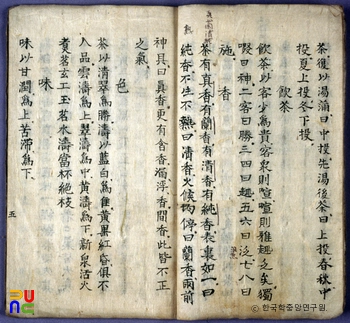 茶復以湯滿曰中投先湯後茶曰上投春秋中
投夏上投冬下投
飲茶
飲茶以客少爲貴客衆則喧喧則雅趣乏矣獨
啜曰神二客曰勝三四曰趣五六曰泛七八曰
施 香
茶有真香有蘭香有清香有純香表裏如一曰
純香不生不熟曰清香火候均停曰蘭香雨前
神具曰真香更有含香漏浮香間香此皆不正
之氣
色
茶以清翠爲勝濤以藍白爲佳黃黑紅昏俱不
入品雲濤爲上翠濤爲中黃濤爲下新泉活火
煮茗玄工玉茗氷濤當杯絶枝
味
味以甘潤爲上苦滯爲下
五
©한국학중앙연구원